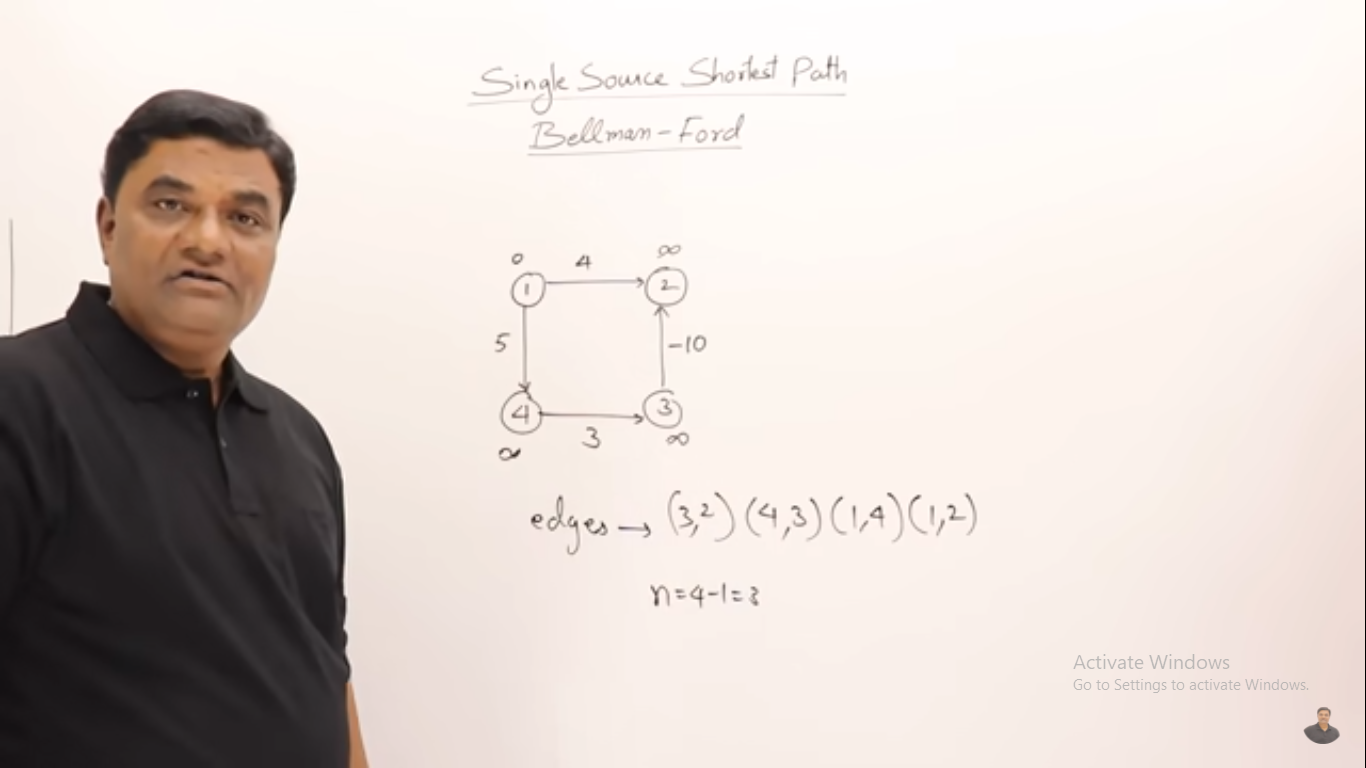 Single Source Shortest Path
Bellman-Ford
0 4 ∞
1 2
5 -10
4 3
3
∞ ∞
edges → (3,2) (4,3) (1,4) (1,2)
n=4-1=3
Activate Windows
Go to Settings to activate Windows.